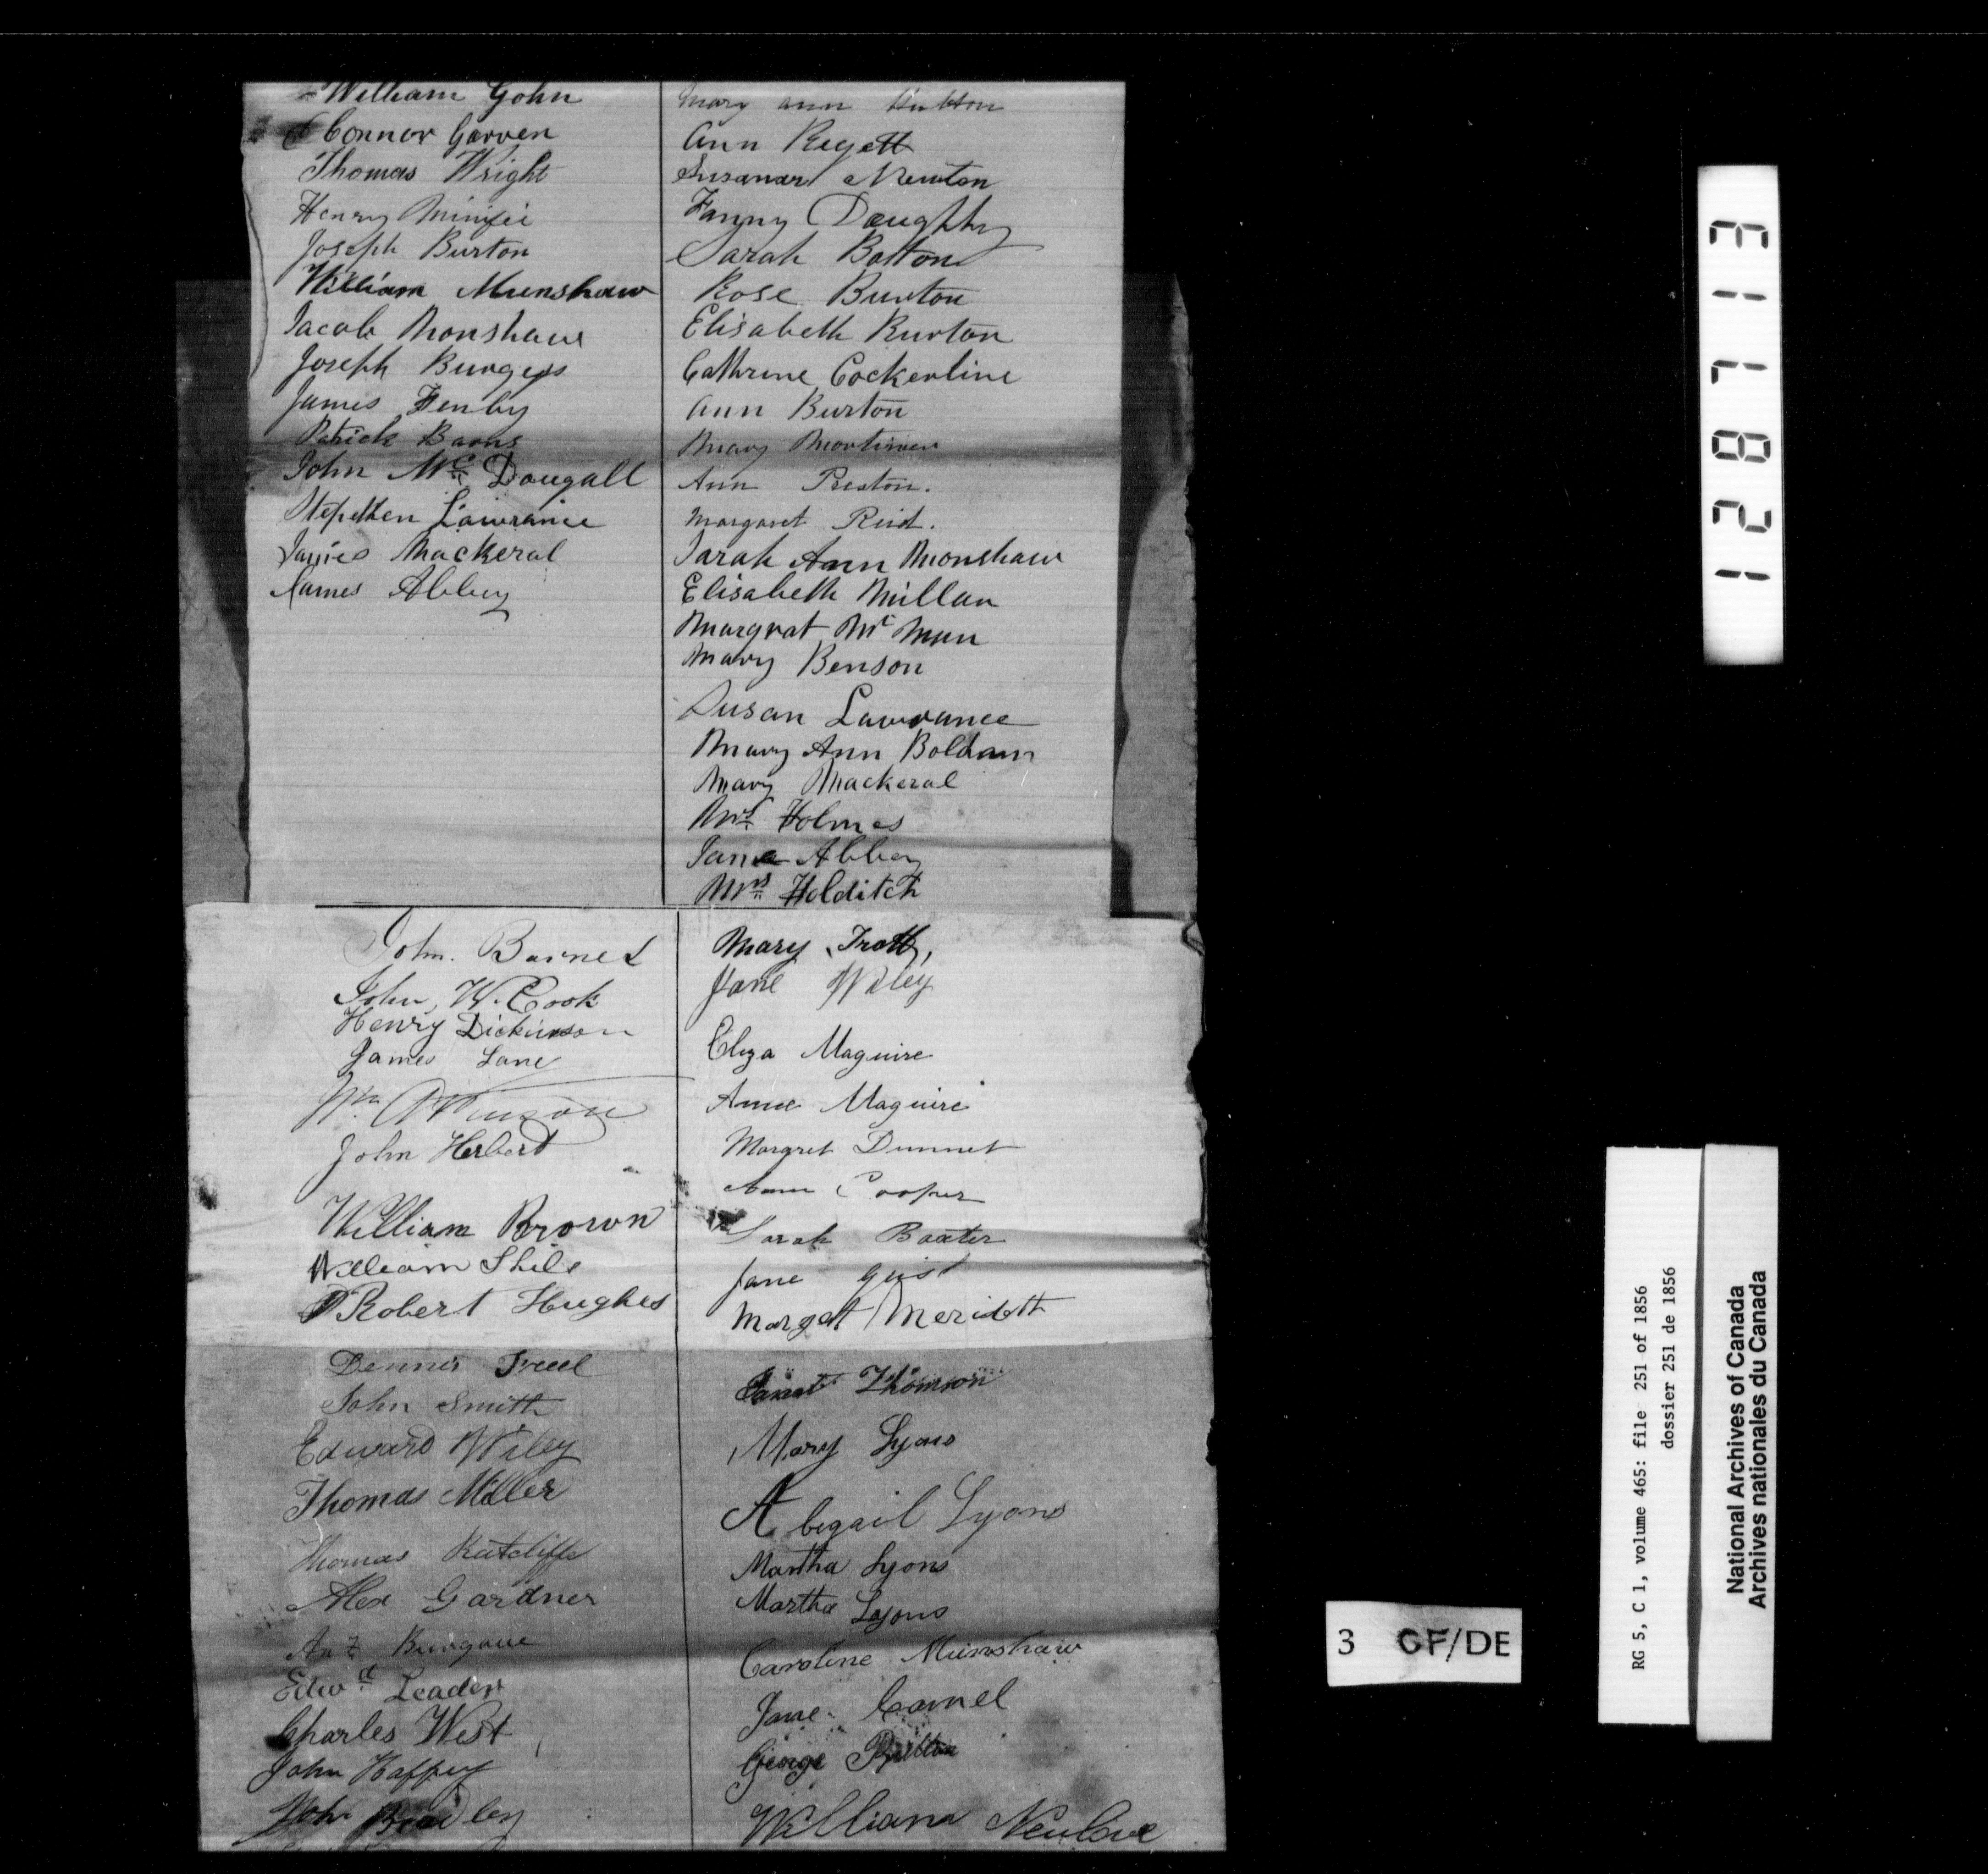 William Gohn
Connor Garven
Thomas Wright
Henry Minifie
Joseph Burton
William Munshaw
Jacob Monshaw
Joseph Burgess
James Fenby
Patrick Barns
John Mc Dougall
Stephen Lawrance
James Mackeral
James Abbey
Mary ann Hutton
Ann Regett
Susanar Newton
Fanny Doughty
Sarah Bolton
Rose Burton
Elisabeth Burton
Cathrine Cockerline
Ann Burton
Mary Mortimer
Ann Preston.
Margaret Reid.
Sarah Ann Monshaw
Elisabeth Millar
Margrat Mc Mun
Mary Benson
Susan Lawrance
Mary Ann Boldam
Mary Mackeral
Mrs Holmes
Jane Abbey
Mrs Holditch
John. Barnes
John, W. Cook
Henry Dickinson
James Lane
Wm
John Herbert
William Brown
William Shils
Robert Hughes
Dennis Freel
John Smith
Edward Wiley
Thomas Miller
Thomas Ratcliffe
Alex Gardner
Edwd Leader
Charles West
John Haffey
John Bradley
Mary Trott,
Jane Wiley
Eliza Maguire
Anne Maguire
Margret Dunnet
Ann Cooper
Sarah Baxter
Jane Geist
Marget Merideth
Janat Thomson
Mary Lyons
Abegail Lyons
Martha Lyons
Martha Lyons
Caroline Munshaw
Jane Camel
George
William Newlove
128713
3 CF/DE
RG 5, C 1, volume 465: file 251 of 1856
dossier 251 de 1856
National Archives of Canada
Archives nationales du Canada